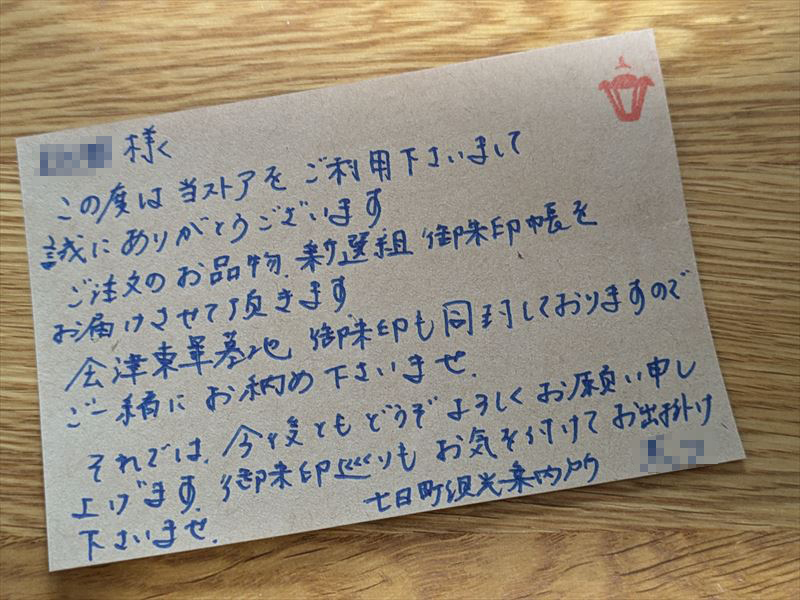 様
この度は当ストアをご利用下さいまして
誠にありがとうございます
ご注文のお品物、新選組 御朱印帳を
お届けさせて頂きます
会津東軍墓地 御朱印も同封しておりますので
ご一緒にお納め下さいませ.
それでは、今後ともどうぞよろしくお願い申し
上げます. 御朱印巡りもお気を付けてお出掛け
下さいませ.
七日町観光案内所